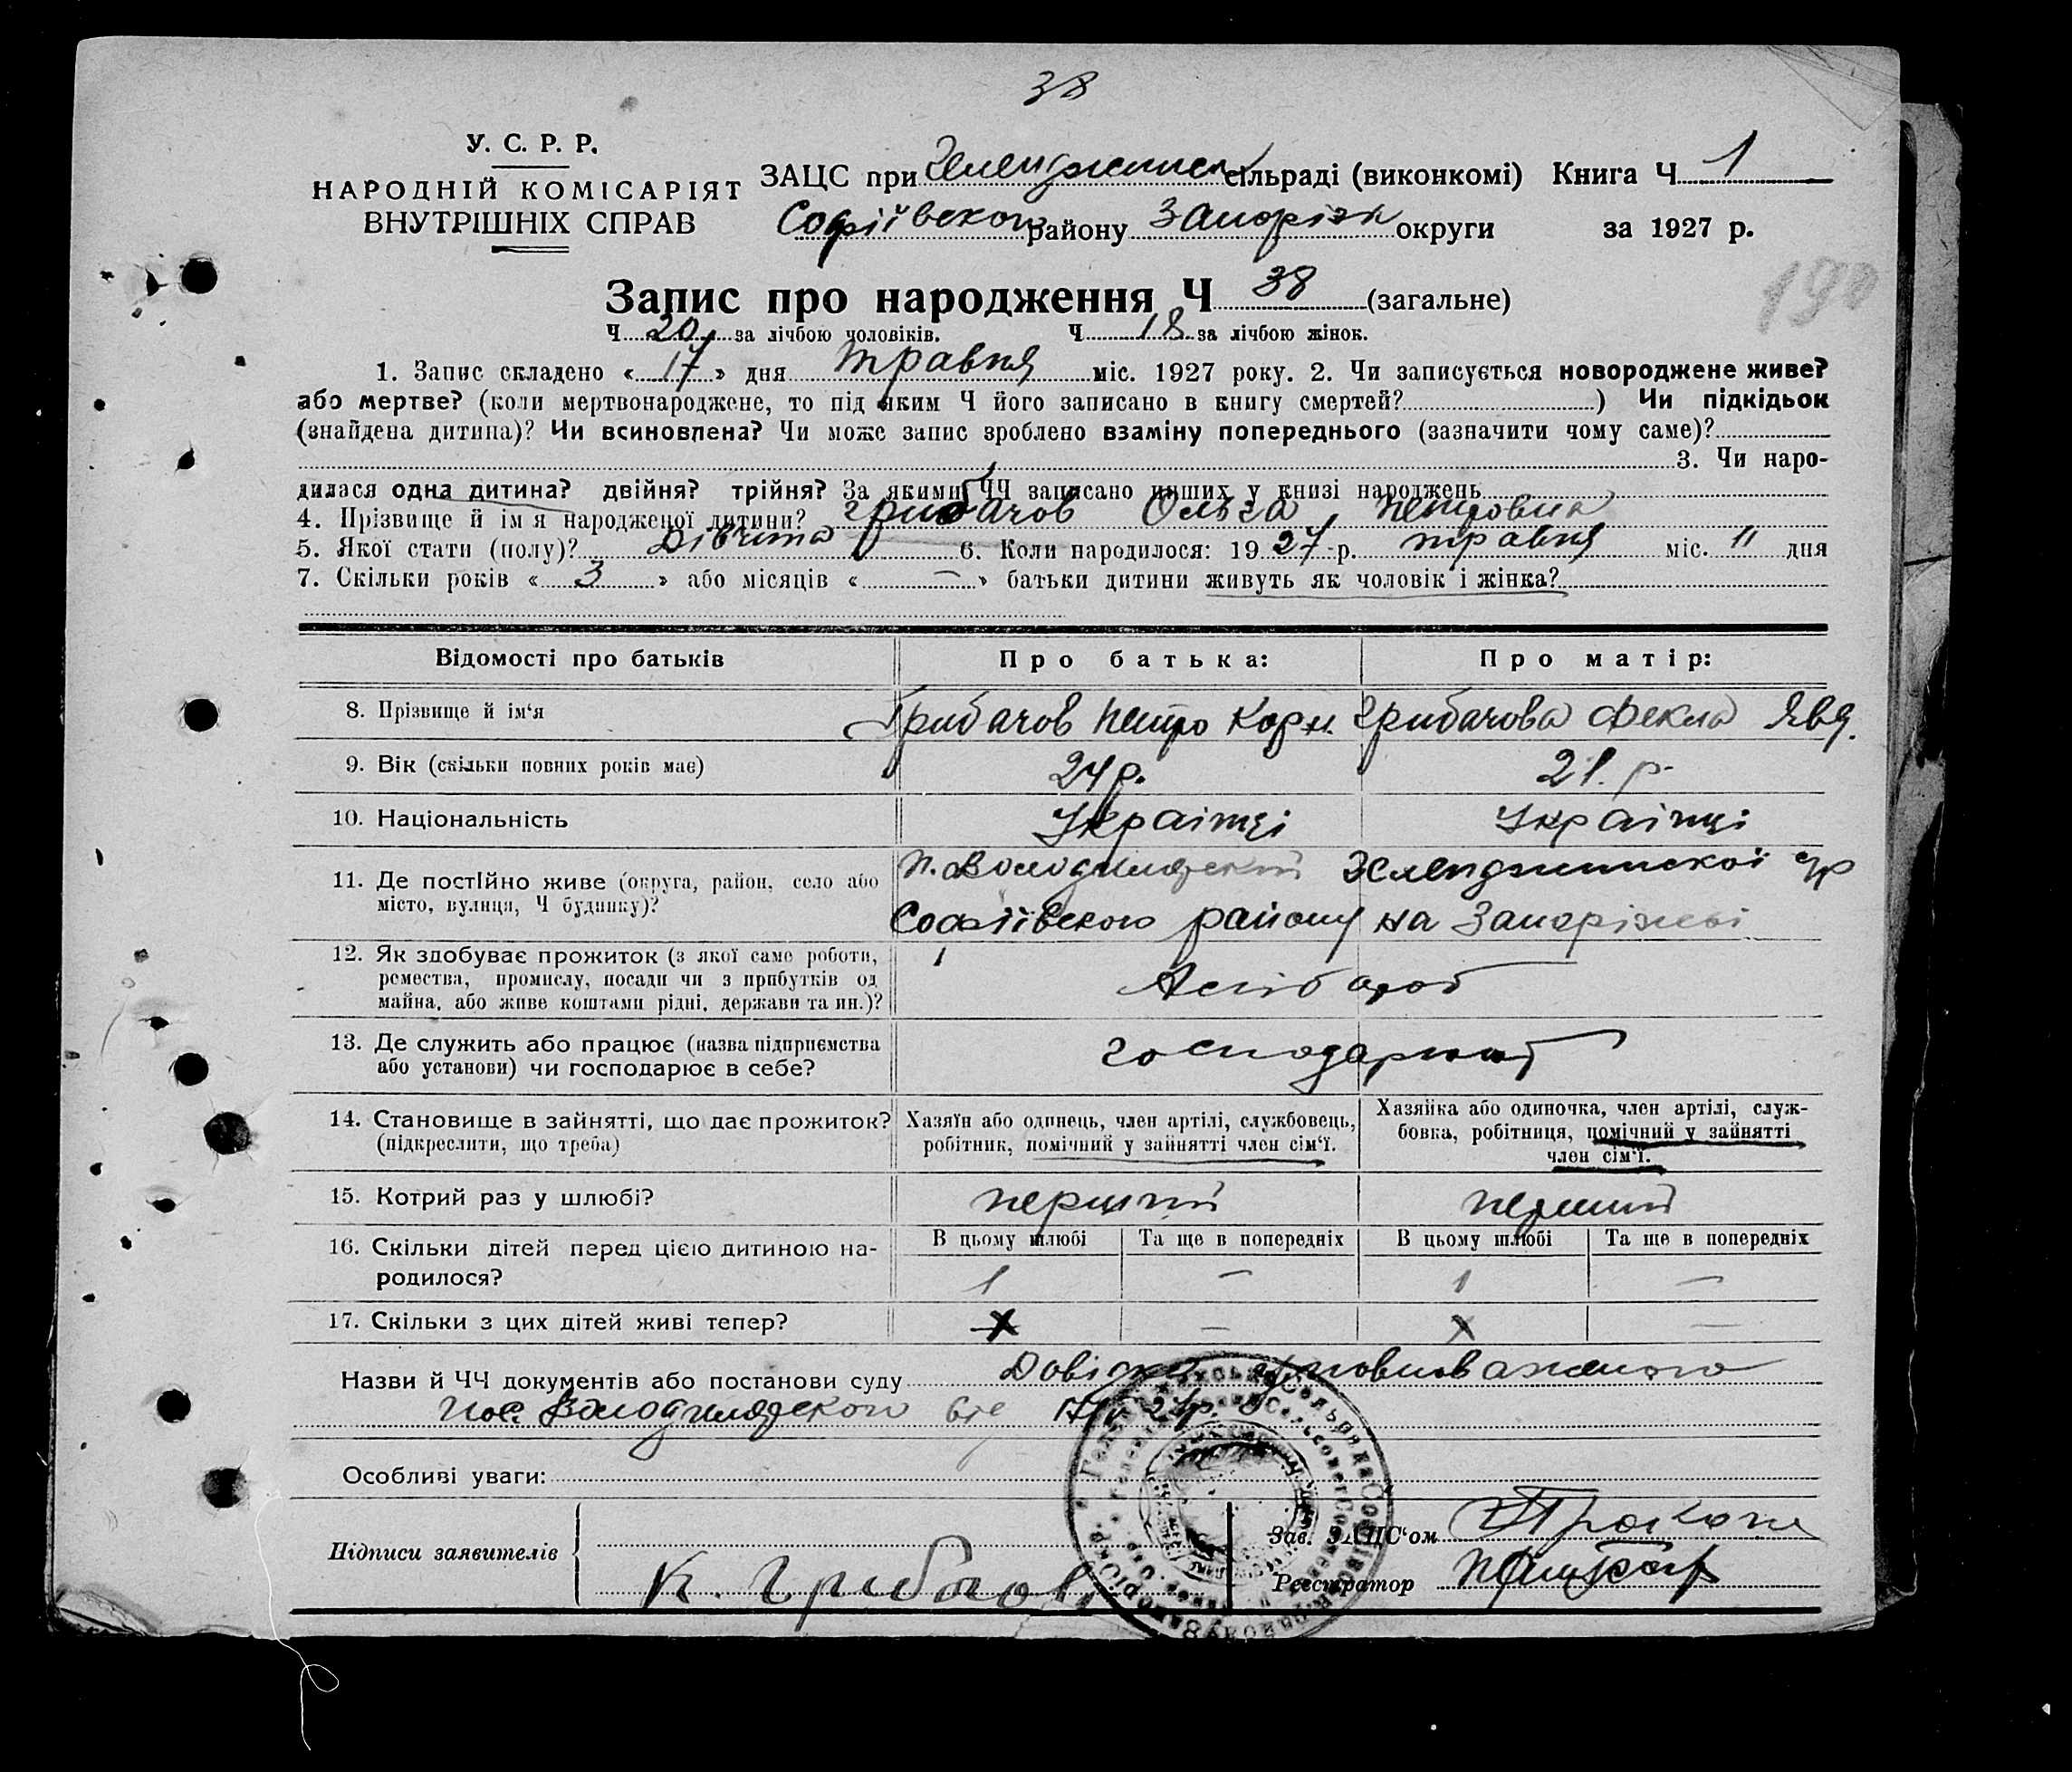 38
У. С. Р. Р.
НАРОДНІЙ КОМІСАРІЯТ
ВНУТРІШНІХ СПРАВ
ЗАЦС при сільраді (виконкомі) Книга Ч 1
Софіївского району Запорізк округи за 1927 р.
190
Запис про народження Ч 38 (загальне)
Ч 20 за лічбою чоловіків. Ч 18 за лічбою жінок.
1. Запис складено « 17 » дня травня міс. 1927 року. 2. Чи записується новороджене живе?
або мертве? (коли мертвонароджене, то під яким Ч його записано в книгу смертей? ) Чи підкідьок
(знайдена дитина)? Чи всиновлена? Чи може запис зроблено взаміну попереднього (зазначити чому саме)?
3. Чи наро-
дилася одна дитина? двійня? трійня? За якими ЧЧ записано инших у книзі народжень
4. Прізвище й ім'я народженої дитини? Грибачов Ольга Петровна
5. Якої стати (полу)? Дівчина 6. Коли народилося: 19 27 р. травня міс. 11 дня
7. Скільки років « 3 » або місяців « — » батьки дитини живуть як чоловік і жінка?
Відомості про батьків Про батька: Про матір:
8. Прізвище й ім'я Грибачов Петро Корн. Грибачова Фекла Явд.
9. Вік (скільки повних років має) 24 р. 21. р.
10. Національність Українці Українці
11. Де постійно живе (округа, район, село або
місто, вулиця, Ч будинку)?
Софіївского району на Запоріжжі
12. Як здобуває прожиток (з якої саме роботи,
ремества, промислу, посади чи з прибутків од
майна, або живе коштами рідні, держави та ин.)?
Хлібороб
13. Де служить або працює (назва підприємства
або установи) чи господарює в себе?
господарюют
14. Становище в зайнятті, що дає прожиток?
(підкреслити, що треба)
Хазяїн або одинець, член артілі, службовець,
робітник, помічний у зайнятті член сім'ї.
Хазяйка або одиночка, член артілі, служ-
бовка, робітниця, помічний у зайнятті
член сім'ї.
15. Котрий раз у шлюбі? перший перший
16. Скільки дітей перед цією дитиною на-
родилося?
В цьому шлюбі Та ще в попередніх В цьому шлюбі Та ще в попередніх
1 — 1 —
17. Скільки з цих дітей живі тепер? х — х —
Назви й ЧЧ документів або постанови суду Довідка уповноваженого
пос. Володимирского
Особливі уваги:
Підписи заявителів
К. Грибачов
Зав. ЗАЦС'ом
Реєстратор